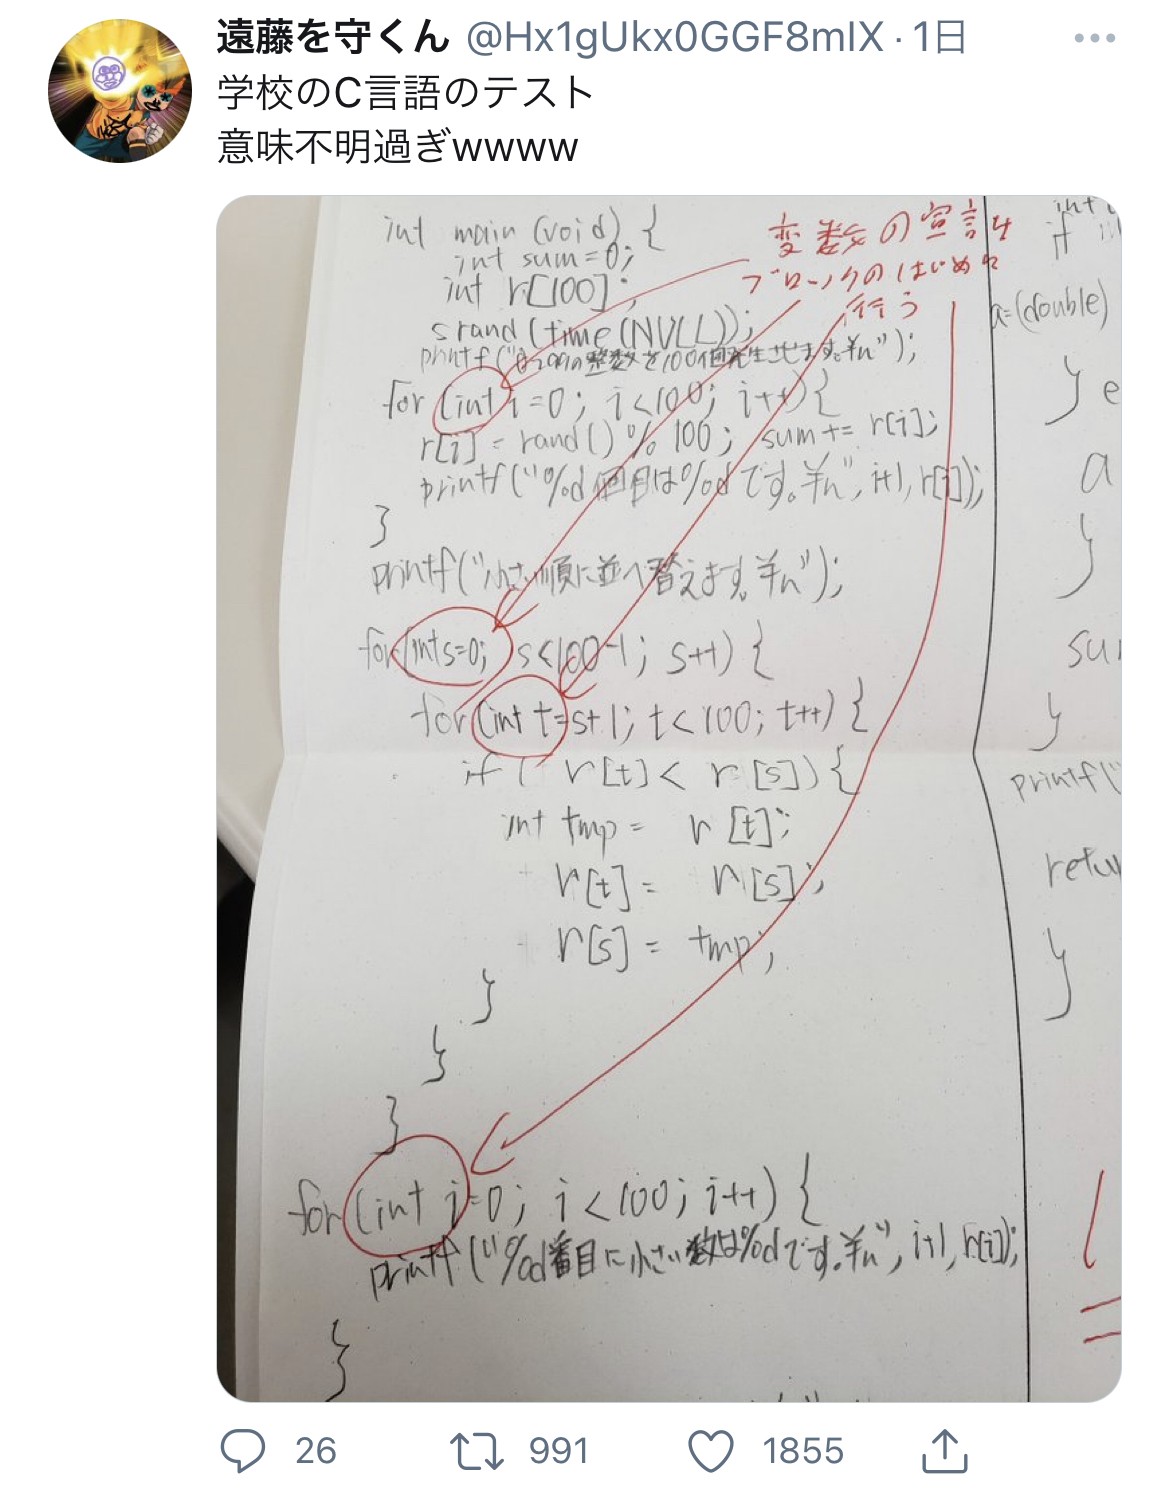 遠藤を守くん @Hx1gUkx0GGF8mIX · 1日
学校のC言語のテスト
意味不明過ぎwwww
int main (void) {
int sum=0;
int r[100];
srand (time (NULL));
printf("0~99の整数を100個発生させます。¥n");
for (int i=0; i<100; i++){
r[i] = rand() % 100; sum += r[i];
printf("%d個目は%dです。¥n", i+1, r[i]);
}
printf("小さい順に並べ替えます。¥n");
for(int s=0; s<100-1; s++) {
for (int t=s+1; t<100; t++) {
if ( r[t] < r[s]) {
int tmp = r[t];
r[t] = r[s];
r[s] = tmp;
}
}
}
for(int i=0; i<100; i++) {
printf("%d番目に小さい数は%dです。¥n", i+1, r[i]);
}
変数の宣言は
ブロックのはじめに
行う
int
if
a=(double)
} e
a
}
su
}
printf("
retu
}
26 991 1855